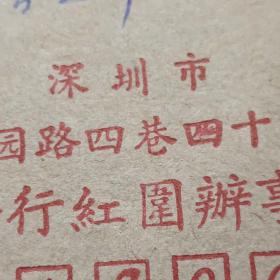 深圳市
园路四巷四十
行紅圍辦事